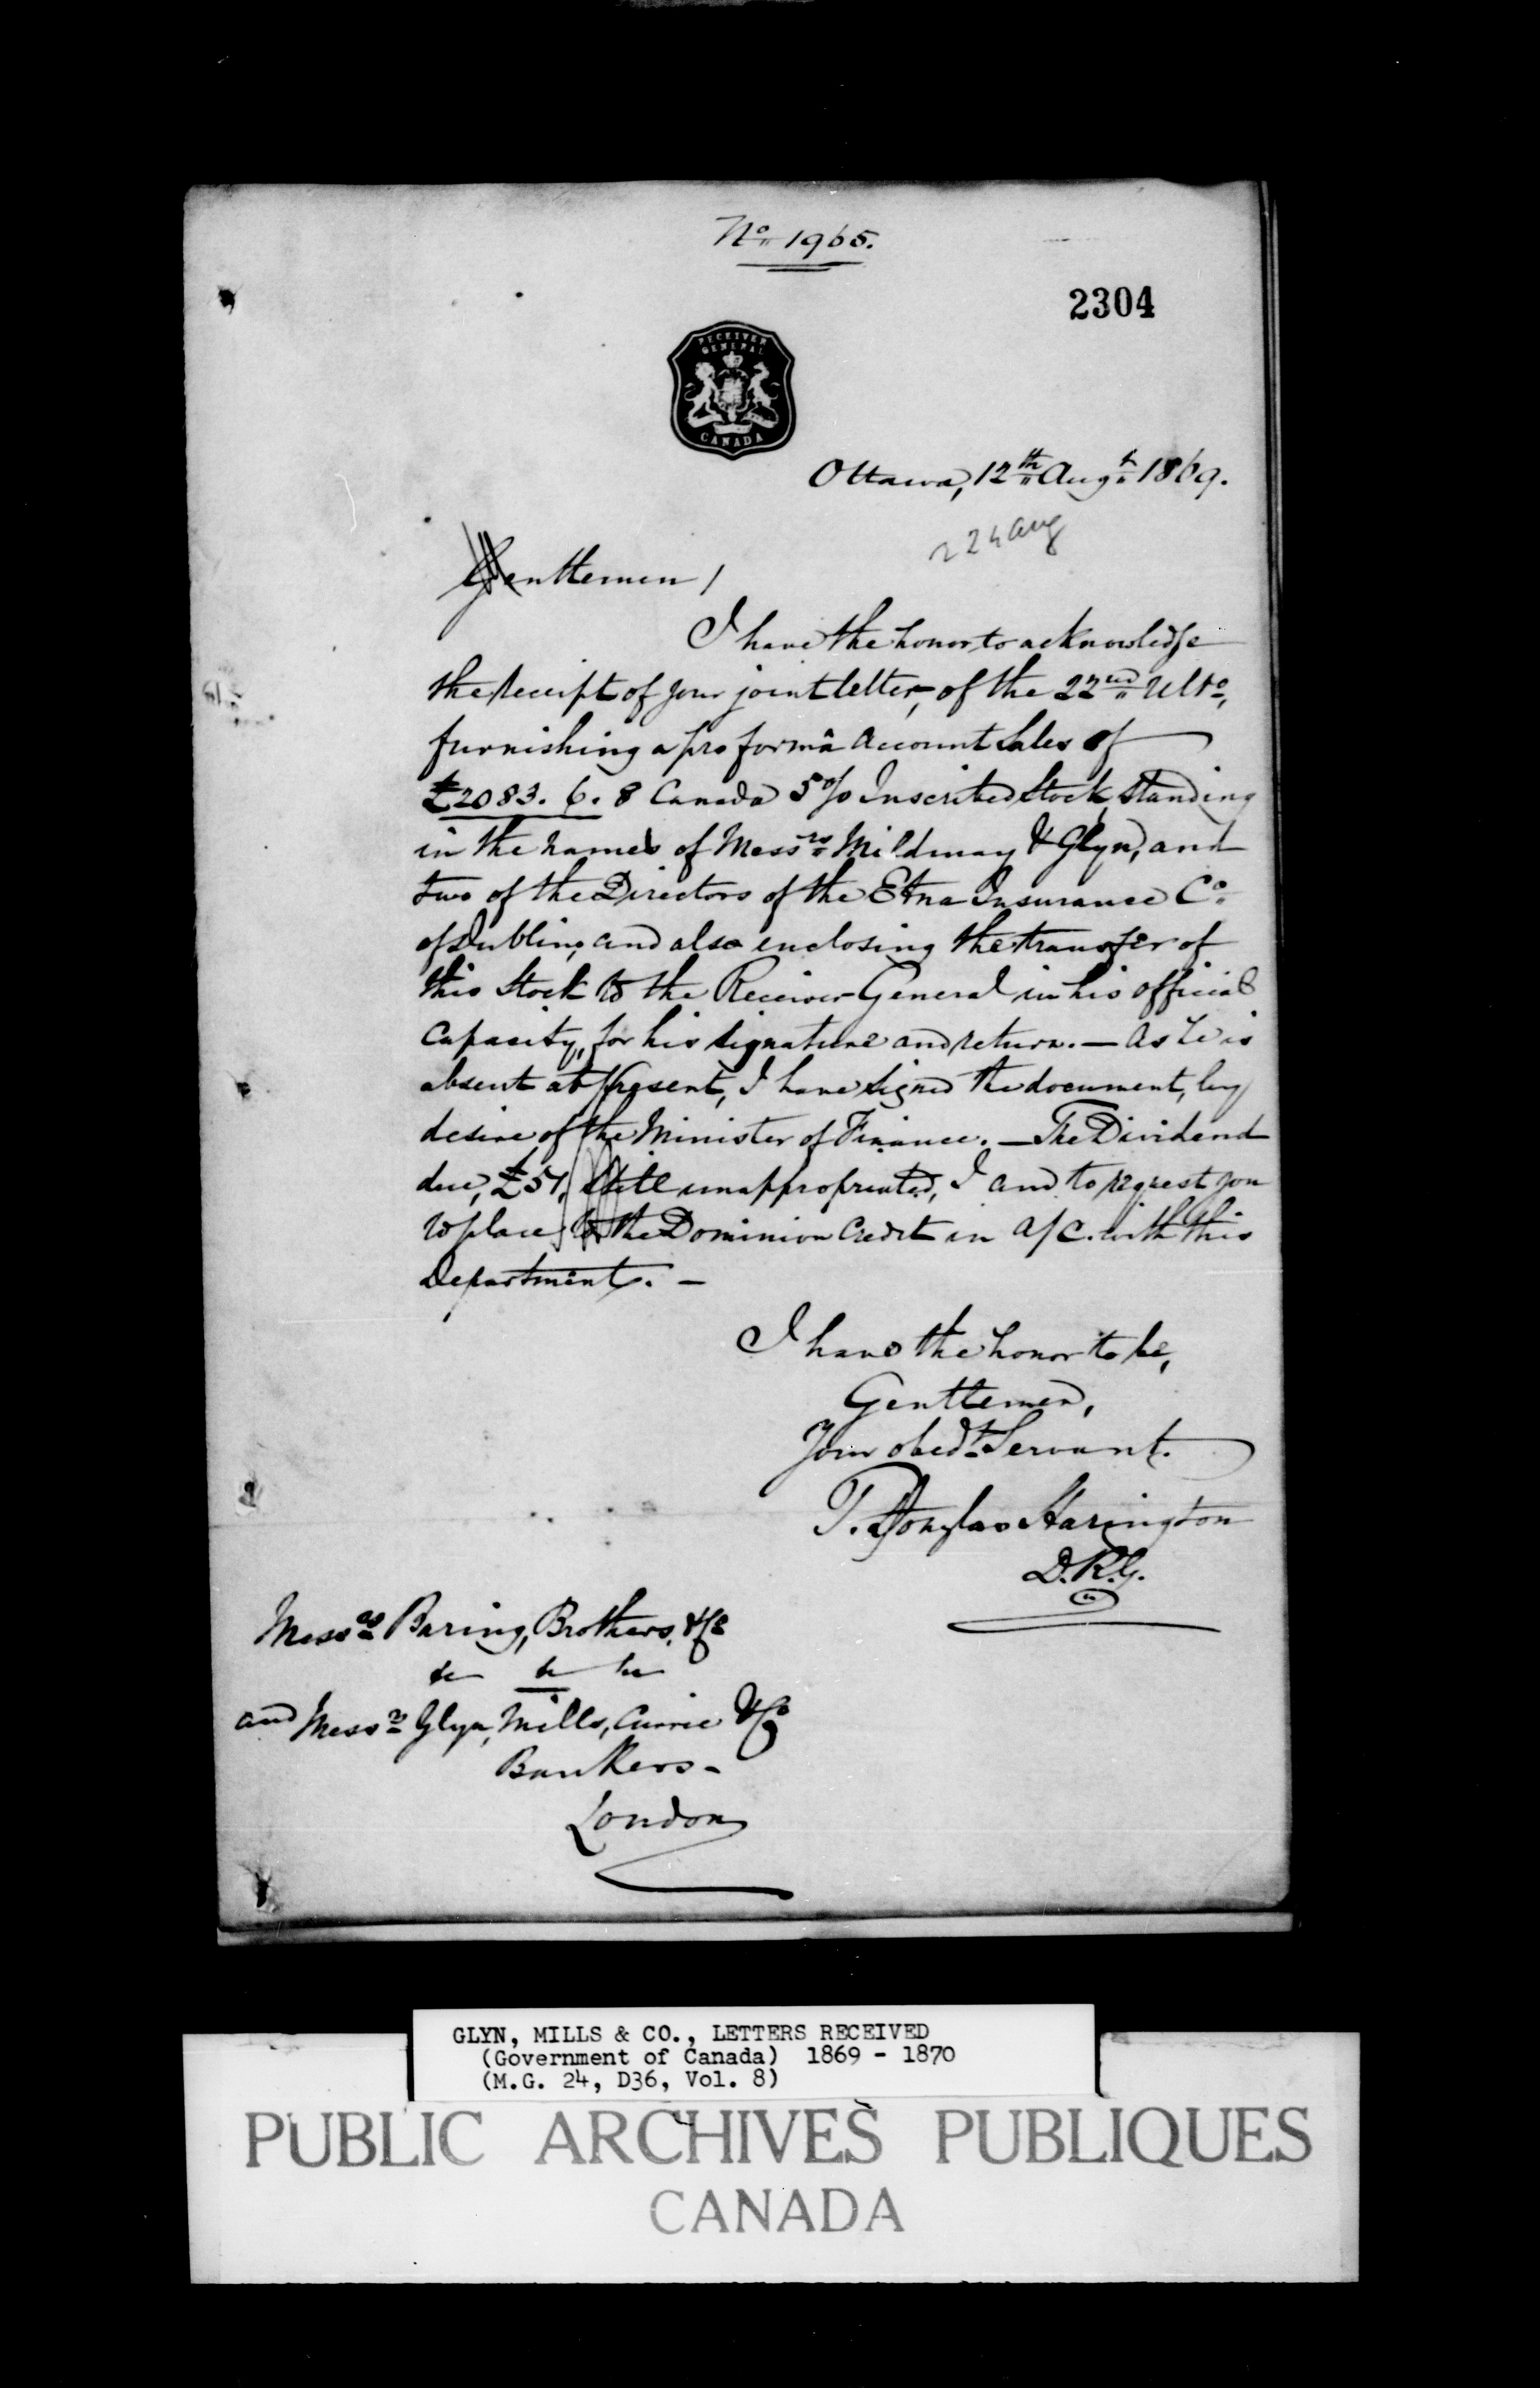 No 1965.
2304
RECEIVER
GENERAL
CANADA
Ottawa, 12th Augt 1869.
24 Aug
Gentlemen,
I have the honor to acknowledge
the receipt of your joint letter, of the 22nd Ulto,
furnishing a pro forma Account Sales of
£2083. 6. 8 Canada 5% Inscribed Stock, standing
in the names of Messrs Mildmay & Glyn, and
two of the Directors of the Etna Insurance Co.
of Dublin, and also enclosing the transfer of
this Stock to the Receiver General in his official
capacity, for his signature and return. — As he is
absent at present, I have signed the document, by
desire of the Minister of Finance. — The Dividend
due, £51, still unappropriated, I am to request you
to place to the Dominion Credit in a/c. with this
Department. —
I have the honor to be,
Gentlemen,
Your obedt Servant.
T. Douglas Harington
D.R.G.
Messrs Baring, Brothers, & Co
&c &c &c
and Messrs Glyn, Mills, Currie & Co
Bankers -
London
GLYN, MILLS & CO., LETTERS RECEIVED
(Government of Canada) 1869 - 1870
(M.G. 24, D36, Vol. 8)
PUBLIC ARCHIVES PUBLIQUES
CANADA